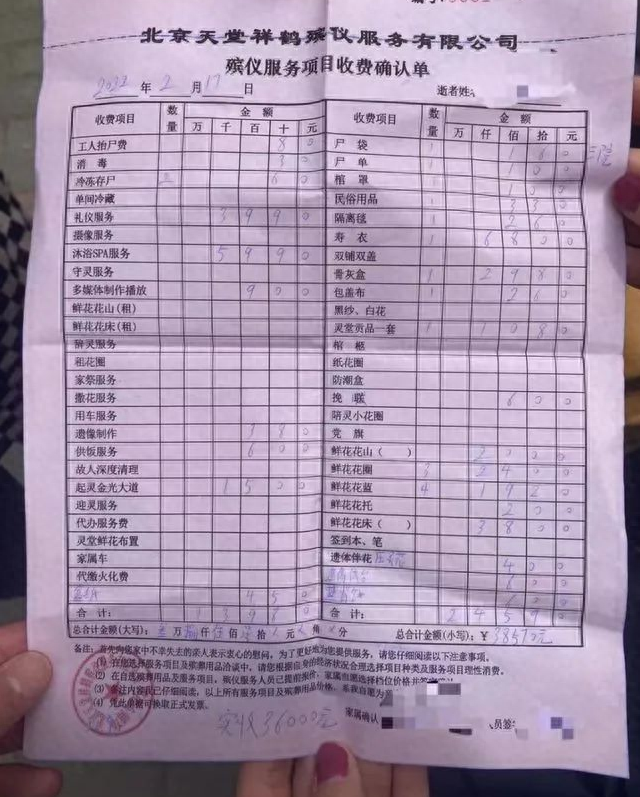 北京天堂祥鹤殡仪服务有限公司
殡仪服务项目收费确认单
2022 年 2 月 17 日 逝者姓
收费项目 数量 金额 收费项目 数量 金额
万 千 百 十 元 万 仟 佰 拾 元
工人抬尸费 8 0 尸袋 1
消毒 3 0 尸单 1 1 0 0
冷冻存尸 三 6 0 棺罩 1 1 0 0
单间冷藏 民俗用品 1 3 3 0
礼仪服务 3 9 9 0 隔离毯 1 2 6 0
摄像服务 寿衣 1 6 8 0 0
沐浴SPA服务 5 9 9 0 双铺双盖
守灵服务 骨灰盒 1 2 9 8 0
多媒体制作播放 9 0 0 包盖布 1 2 6 0
鲜花花山(租) 黑纱、白花
鲜花花床(租) 灵堂贡品一套 1 1 0 8 0
辞灵服务 棺柩
租花圈 纸花圈
家祭服务 防潮盒
撒花服务 挽联 6 0 0
用车服务 陪灵小花圈
遗像制作 1 8 0 党旗
供饭服务 6 0 0 鲜花花山( ) 2 0 0 0
故人深度清理 鲜花花圈 3 2 4 0 0
起灵金光大道 1 5 0 0 鲜花花蓝 4 1 9 2 0
迎灵服务 鲜花花托 2 0 0
代办服务费 鲜花花床( ) 3 8 0 0
灵堂鲜花布置 签到本、笔
家属车 遗体伴花 4 0 0
代缴火化费 6 0 0
4 5 0 6 0 0
合计: 1 3 9 8 0 合计: 2 4 5 9 0
总合计金额(大写): 叁万捌仟伍佰柒拾元 角 分 总合计金额(小写):¥38570元
备注:首先向您家中不幸失去的亲人表示衷心的慰问,为了更好地为您提供服务,请您仔细阅读以下注意事项。
(1) 在您选择服务项目及殡葬用品洽谈中,请您根据自身的经济状况合理选择项目种类及服务项目理性消费。
(2) 在自选殡葬用品及服务项目,殡仪服务人员已提前报价,家属自愿选择档位价格并
(3) 备注内容我已仔细阅读,以上所有服务项目及殡葬用品价格,系我自愿为
(4) 凭此单据可换取正式发票。
实收36000元 家属确认 员签